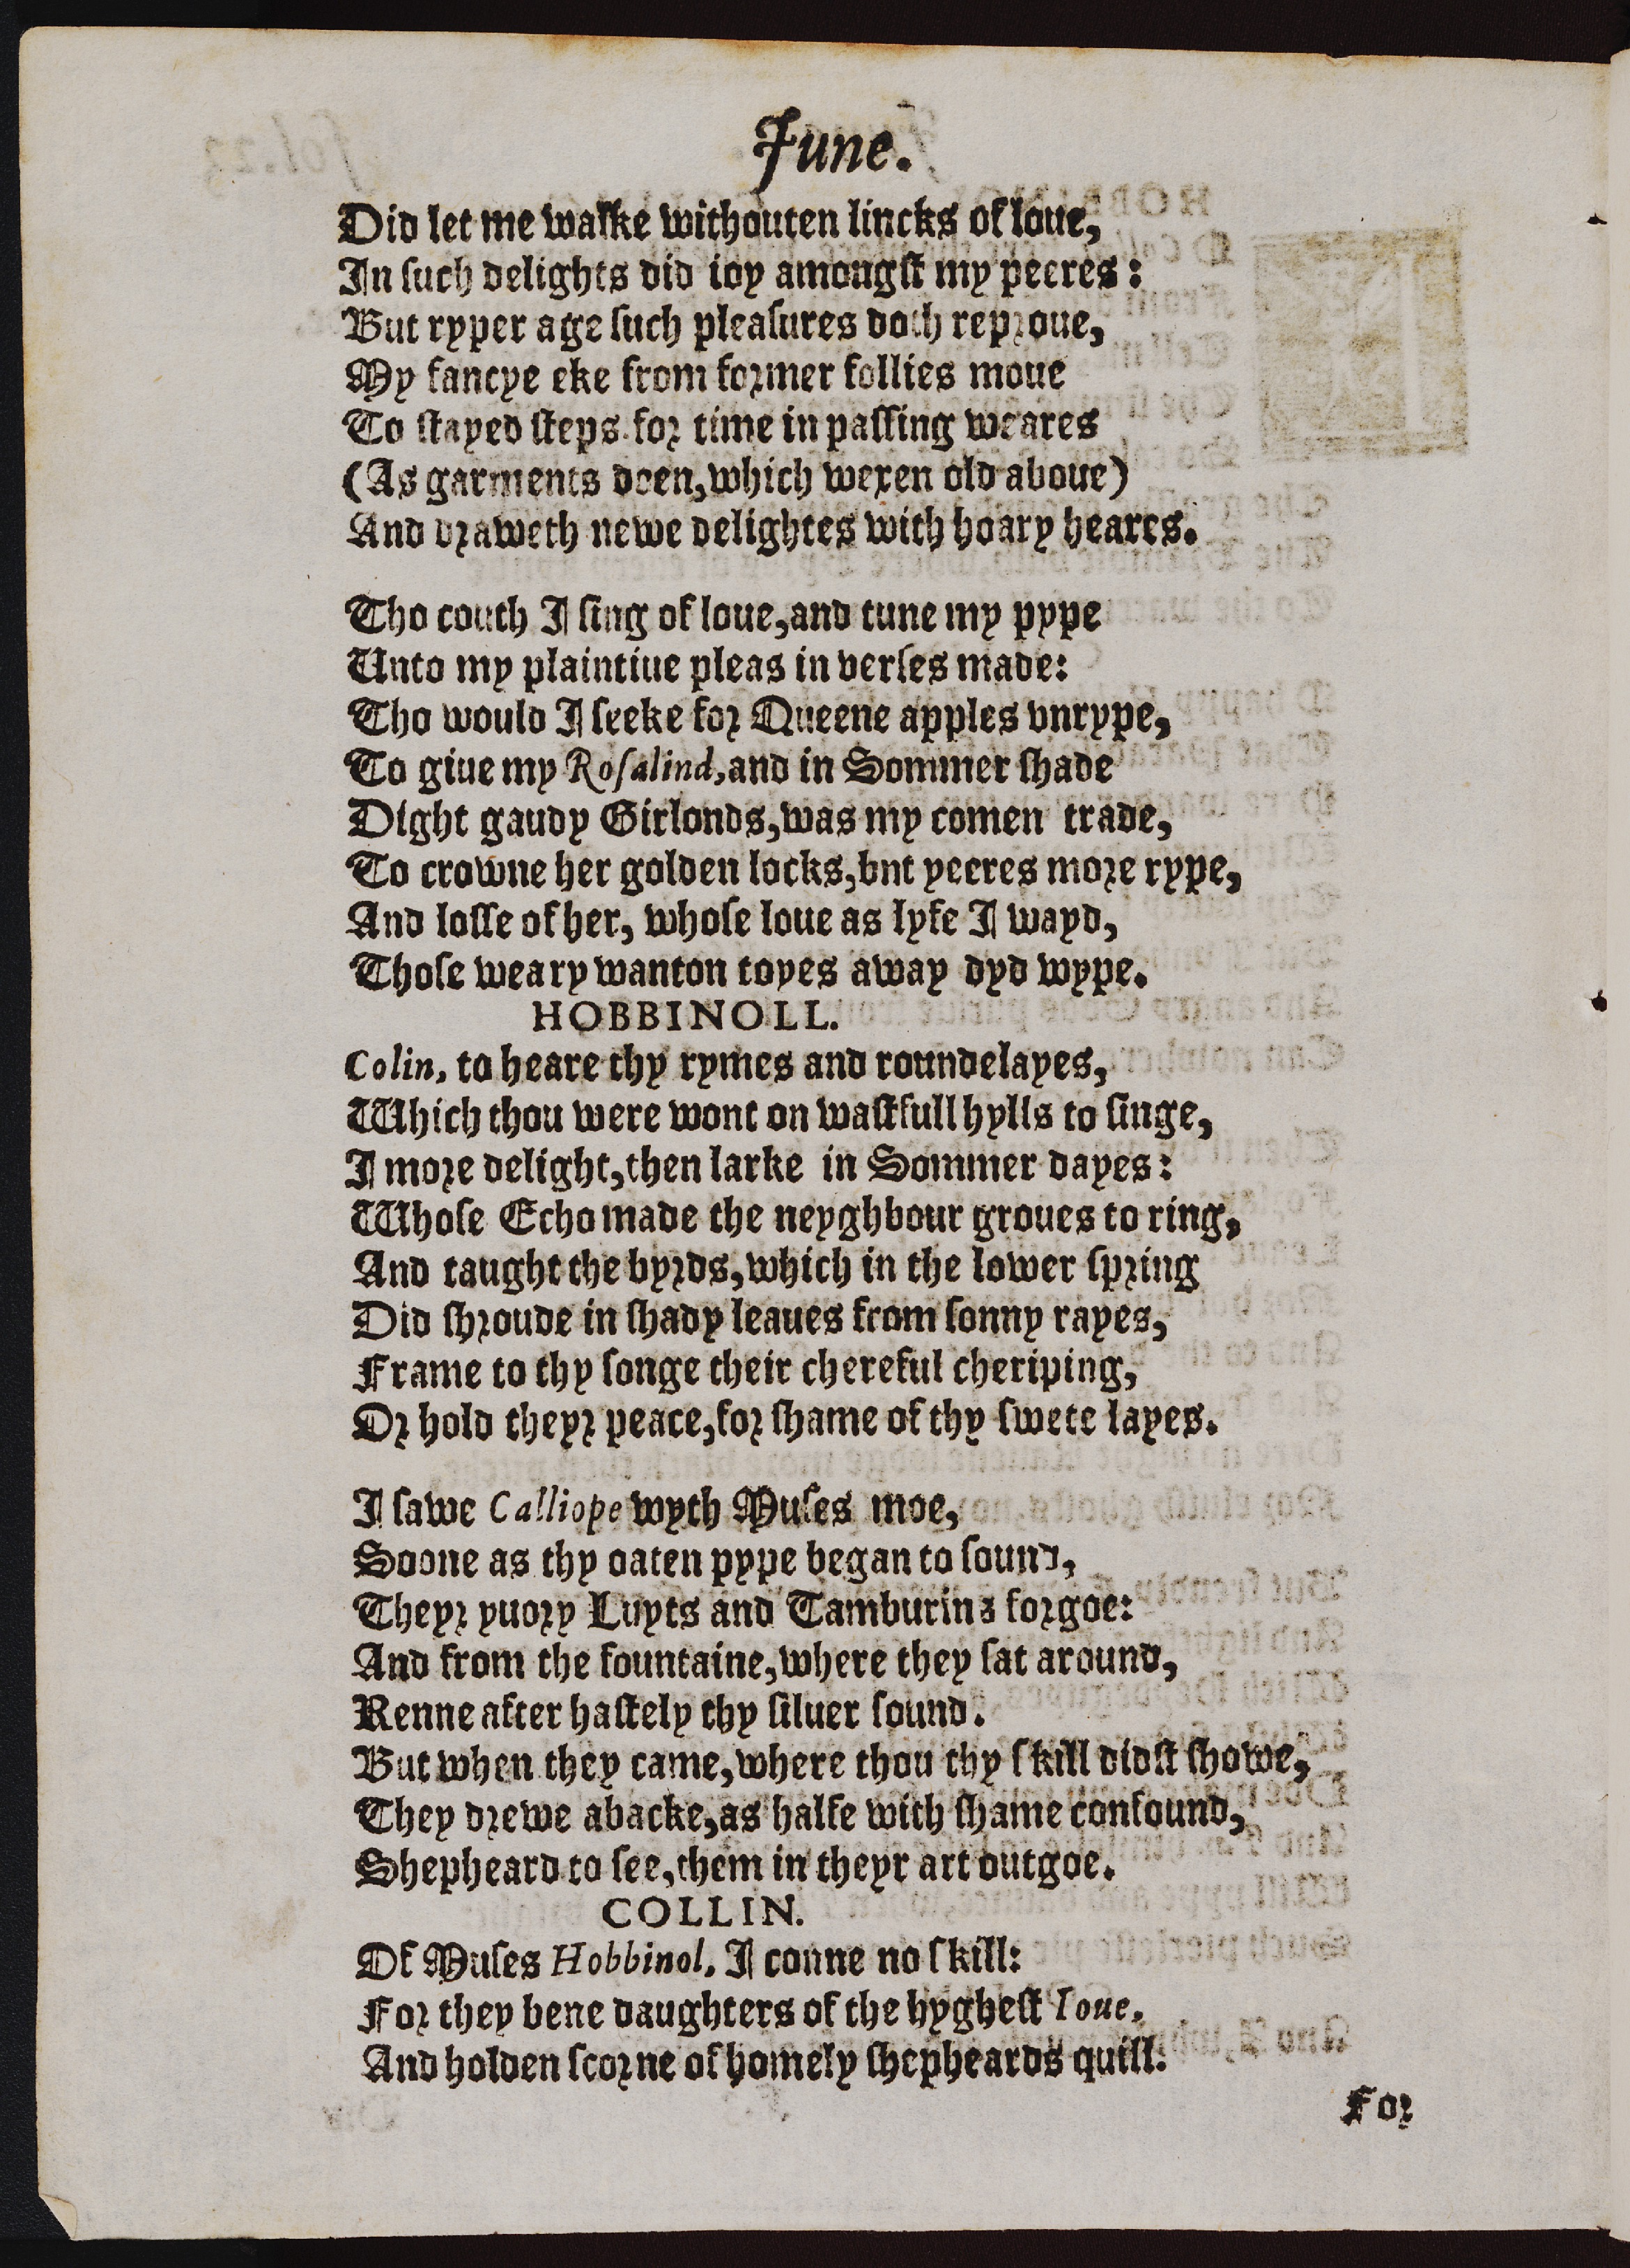 June.
Did let me walke withouten lincks of loue,
In such delights did ioy amongst my peeres:
But ryper age such pleasures doth reproue,
My fancye eke from former follies moue
To stayed steps. for time in passing weares
(As garments doen, which wexen old aboue)
And draweth newe delightes with hoary heares.
Tho couth I sing of loue, and tune my pype
Unto my plaintiue pleas in verses made:
Tho would I seeke for Queene apples vnrype,
To giue my Rosalind, and in Sommer shade
Dight gaudy Girlonds, was my comen trade,
To crowne her golden locks, bnt yeeres more rype,
And losse of her, whose loue as lyfe I wayd,
Those weary wanton toyes away dyd wype.
HOBBINOLL.
Colin, to heare thy rymes and roundelayes,
Which thou were wont on wastfull hylls to singe,
I more delight, then larke in Sommer dayes:
Whose Echo made the neyghbour groues to ring,
And taught the byrds, which in the lower spring
Did shroude in shady leaues from sonny rayes,
Frame to thy songe their chereful cheriping,
Or hold theyr peace, for shame of thy swete layes.
I sawe Calliope wyth Muses moe,
Soone as thy oaten pype began to sound,
Theyr yuory Luyts and Tamburins forgoe:
And from the fountaine, where they sat around,
Renne after hastely thy siluer sound.
But when they came, where thou thy skill didst showe,
They drewe abacke, as halfe with shame confound,
Shepheard to see, them in theyr art outgoe.
COLLIN.
Of Muses Hobbinol, I conne no skill:
For they bene daughters of the hyghest Ioue,
And holden scorne of homely shepheards quill.
For